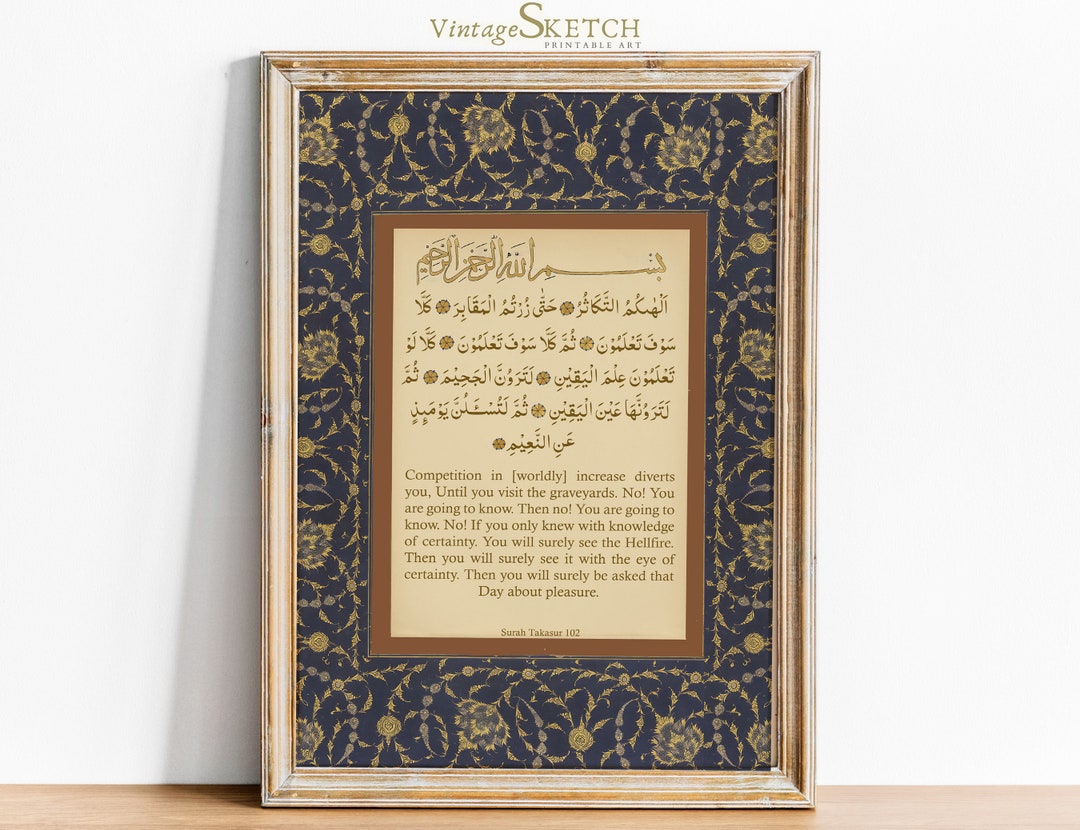 VintageSKETCH
PRINTABLE ART
بسم الله الرحمن الرحيم
اَلْهٰىكُمُ التَّكَاثُرُ ۝ حَتّٰى زُرْتُمُ الْمَقَابِرَ ۝ كَلَّا
سَوْفَ تَعْلَمُوْنَ ۝ ثُمَّ كَلَّا سَوْفَ تَعْلَمُوْنَ ۝ كَلَّا لَوْ
تَعْلَمُوْنَ عِلْمَ الْيَقِيْنِ ۝ لَتَرَوُنَّ الْجَحِيْمَ ۝ ثُمَّ
لَتَرَوُنَّهَا عَيْنَ الْيَقِيْنِ ۝ ثُمَّ لَتُسْـَٔلُنَّ يَوْمَىِٕذٍ
عَنِ النَّعِيْمِ ۝
Competition in [worldly] increase diverts
you, Until you visit the graveyards. No! You
are going to know. Then no! You are going to
know. No! If you only knew with knowledge
of certainty. You will surely see the Hellfire.
Then you will surely see it with the eye of
certainty. Then you will surely be asked that
Day about pleasure.
Surah Takasur 102